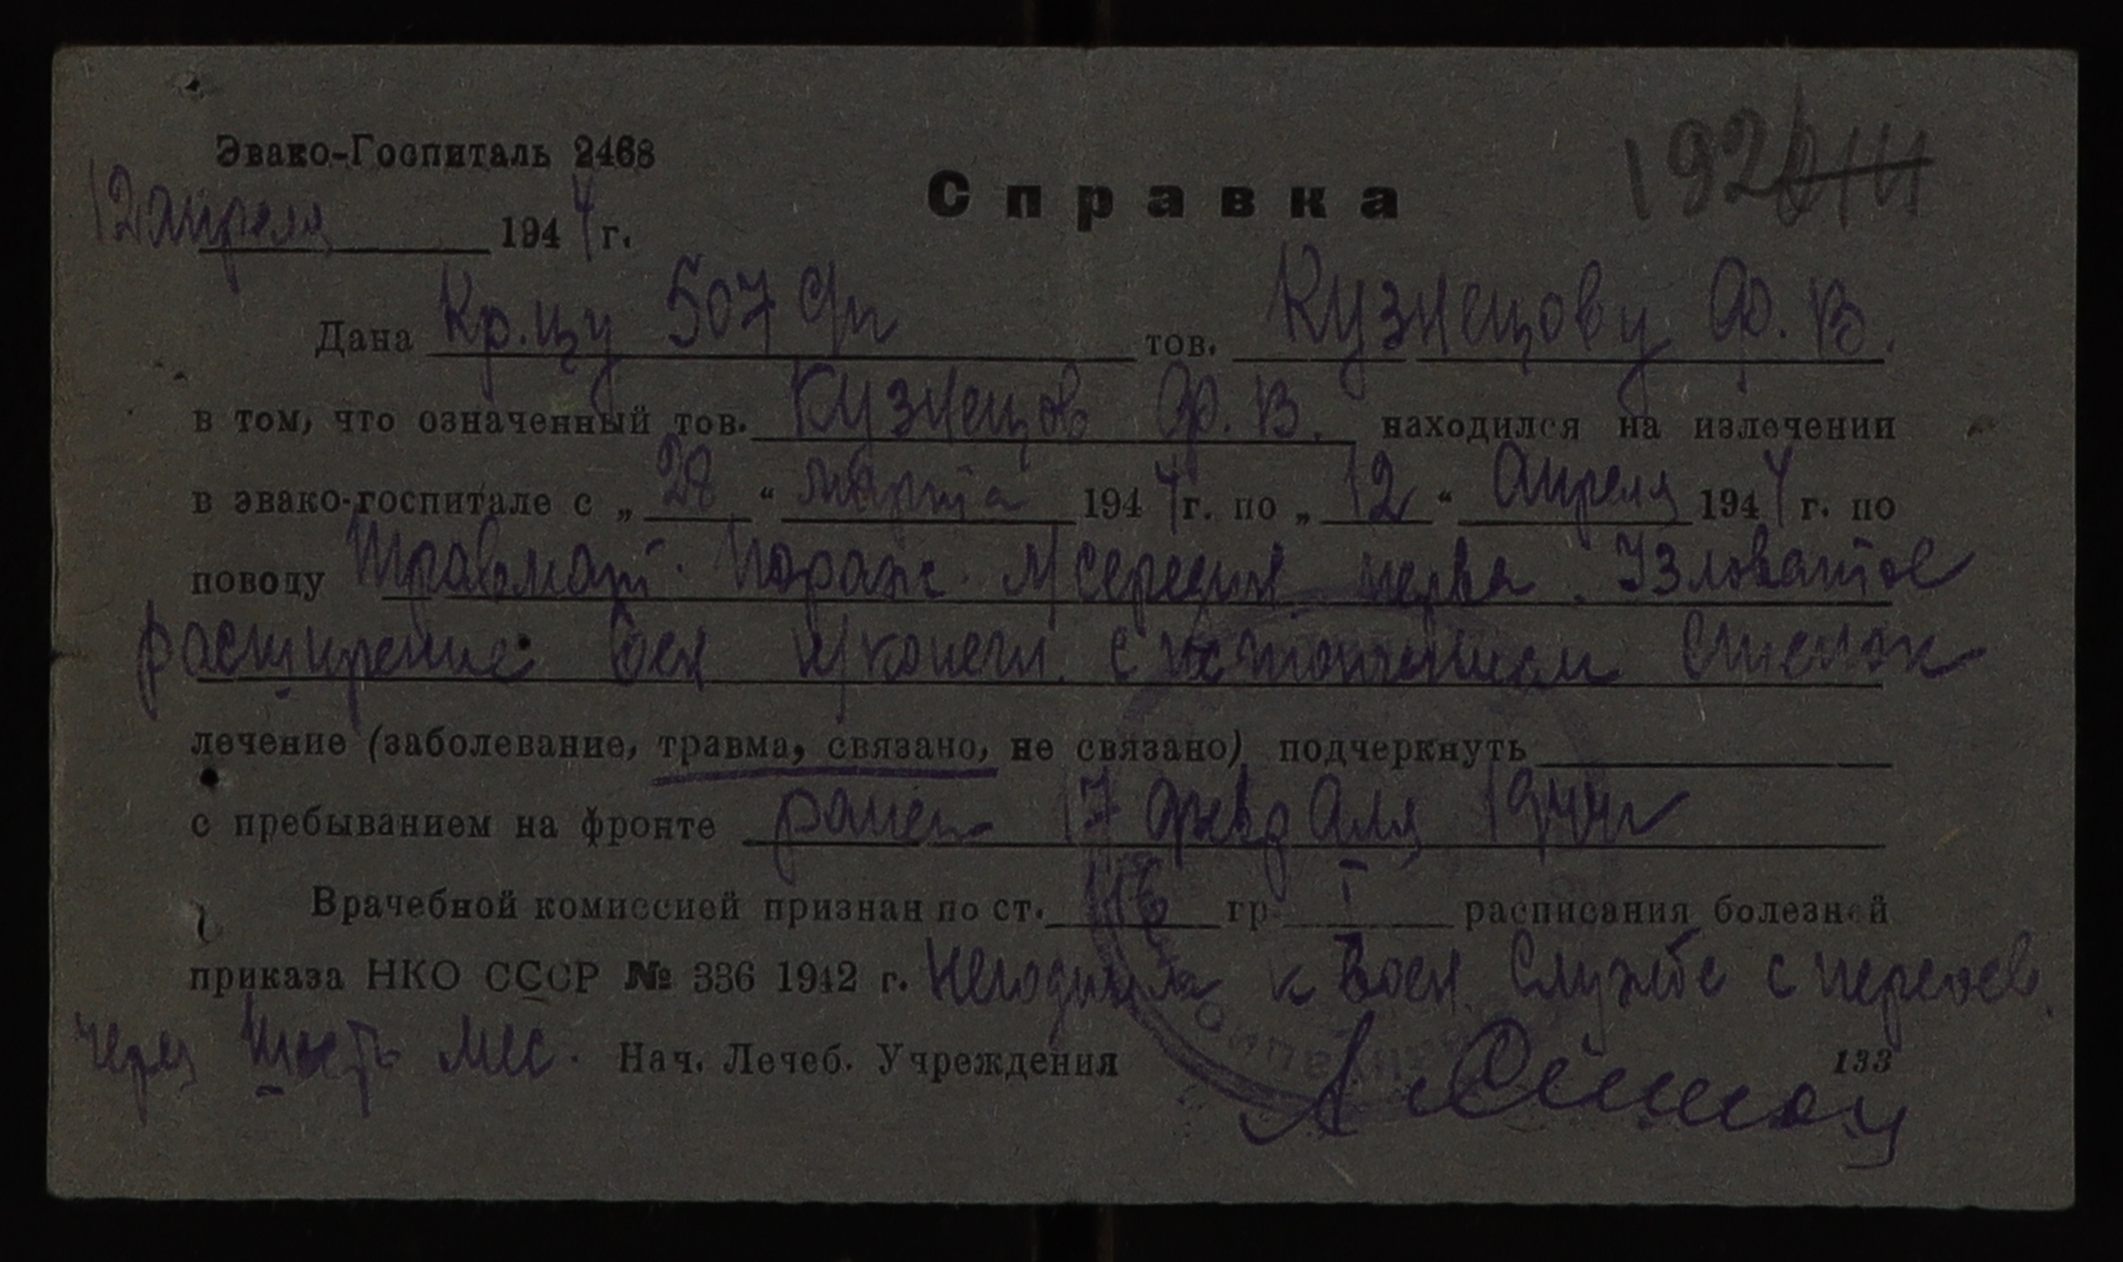 Эвако-Госпиталь 2468
12 апреля 1944 г.
Справка
Дана Кр.цу 507 сп тов. Кузнецову Ф. В.
в том, что означенный тов. Кузнецов Ф. В. находился на излечении
в эвако-госпитале с „28“ марта 1944 г. по „12“ апреля 1944 г. по
поводу Травмат. Пораж. н/середин. нерва. Узловатое
расширение вен н/конечн. с истончением стенок
лечение (заболевание, травма, связано, не связано) подчеркнуть
с пребыванием на фронте ранен 17 февраля 1944 г
Врачебной комиссией признан по ст. 116 гр. I расписания болезней
приказа НКО СССР № 336 1942 г. негодным к воен. службе с переосв.
через шесть мес. Нач. Лечеб. Учреждения
133